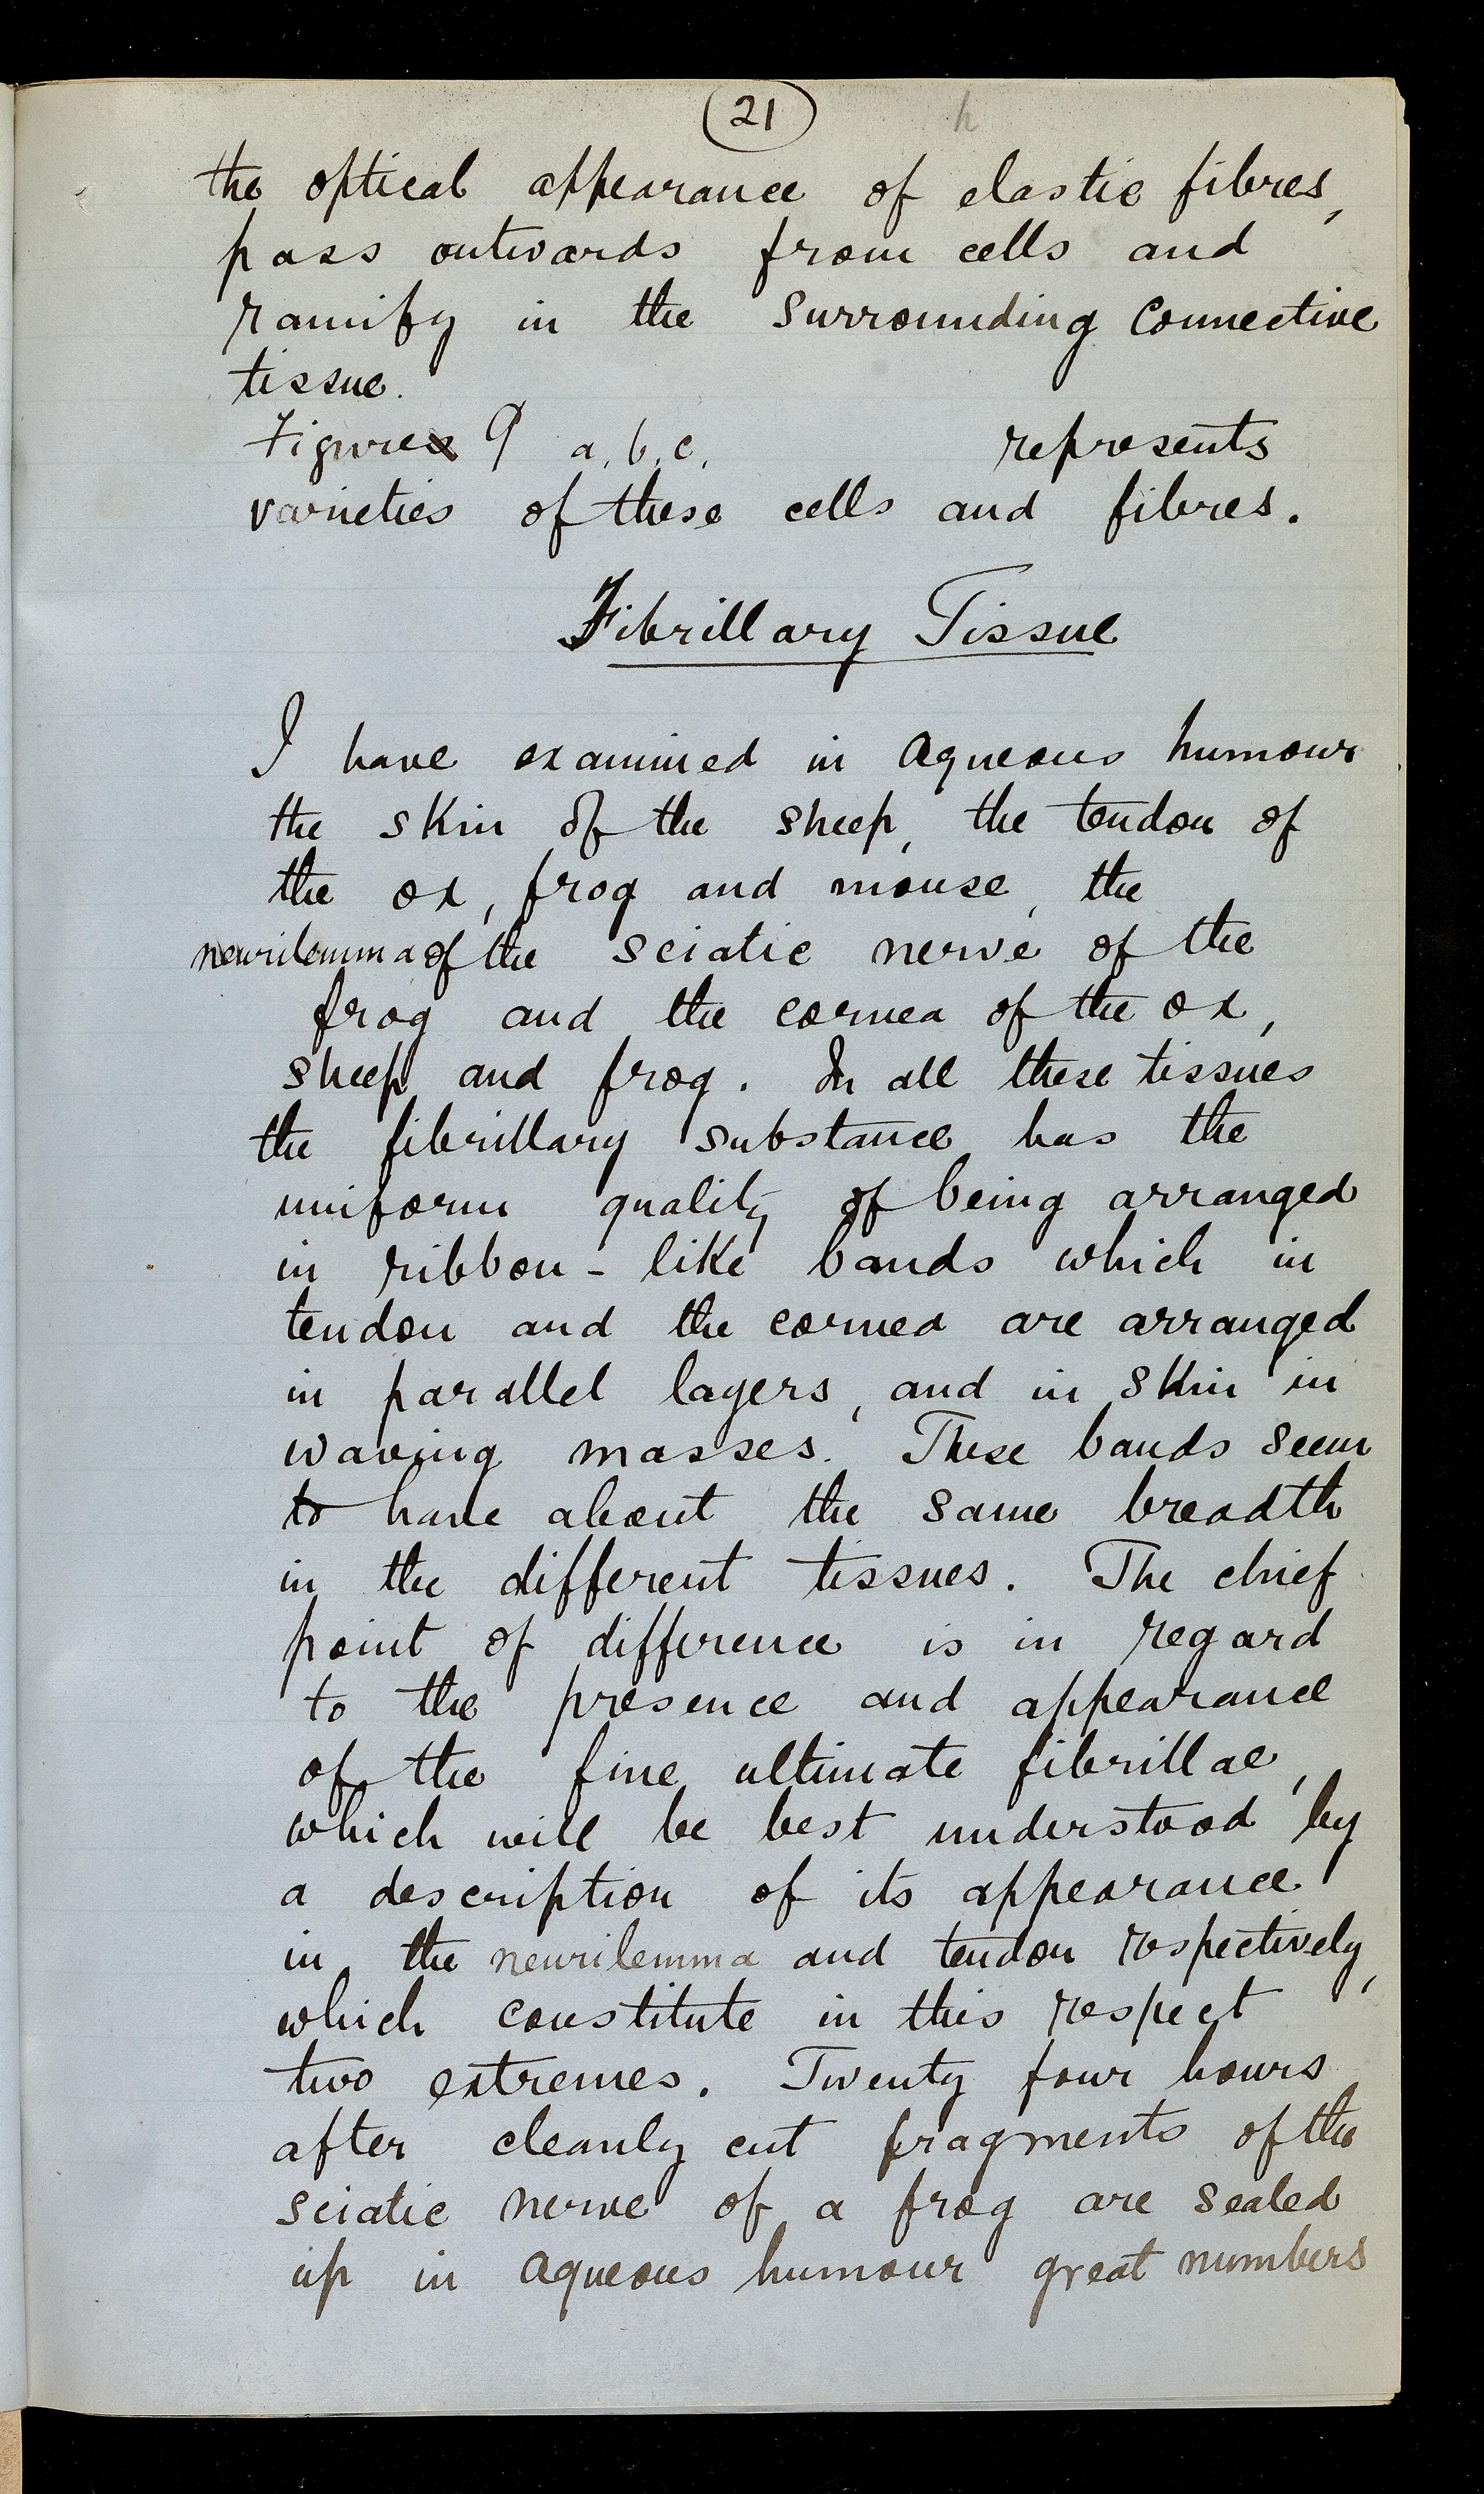 21
h
the optical appearance of elastic fibres,
pass outwards from cells and
ramify in the surrounding Connective
tissue.
Figure 9 a, b, c, represents
varieties of these cells and fibres.
Fibrillary Tissue
I have examined in aqueous humour
the skin of the sheep, the tendon of
the ox, frog and mouse, the
neurilemma of the sciatic nerve of the
frog and the cornea of the ox,
sheep and frog. In all these tissues
the fibrillary substance has the
uniform quality of being arranged
in ribbon-like bands which in
tendon and the cornea are arranged
in parallel layers, and in skin in
waving masses. These bands seem
to have about the same breadth
in the different tissues. The chief
point of difference is in regard
to the presence and appearance
of the fine ultimate fibrillae,
which will be best understood by
a description of its appearance
in the neurilemma and tendon respectively,
which constitute in this respect
two extremes. Twenty four hours
after cleanly cut fragments of the
sciatic nerve of a frog are sealed
up in aqueous humour great numbers